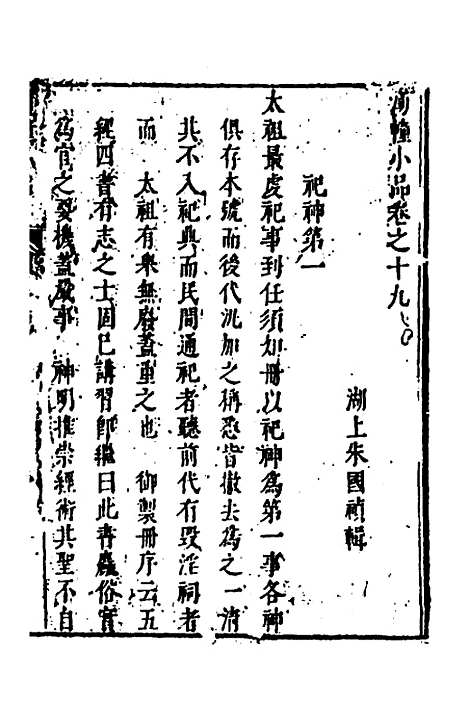 湧幢小品卷之十九
湖上朱國禎輯
祀神第一
太祖最虔祀事到任須知冊以祀神為第一事各神
俱存本號而後代沉加之稱悉皆撤去為之一清
其不入祀典而民間通祀者聽前代有毀淫祠者
而 太祖有舉無廢蓋重之也 御製冊序云五
經四書有志之士固已講習師 曰此青 俗實
為官之 機蓋 事 神明推崇經術其聖不自